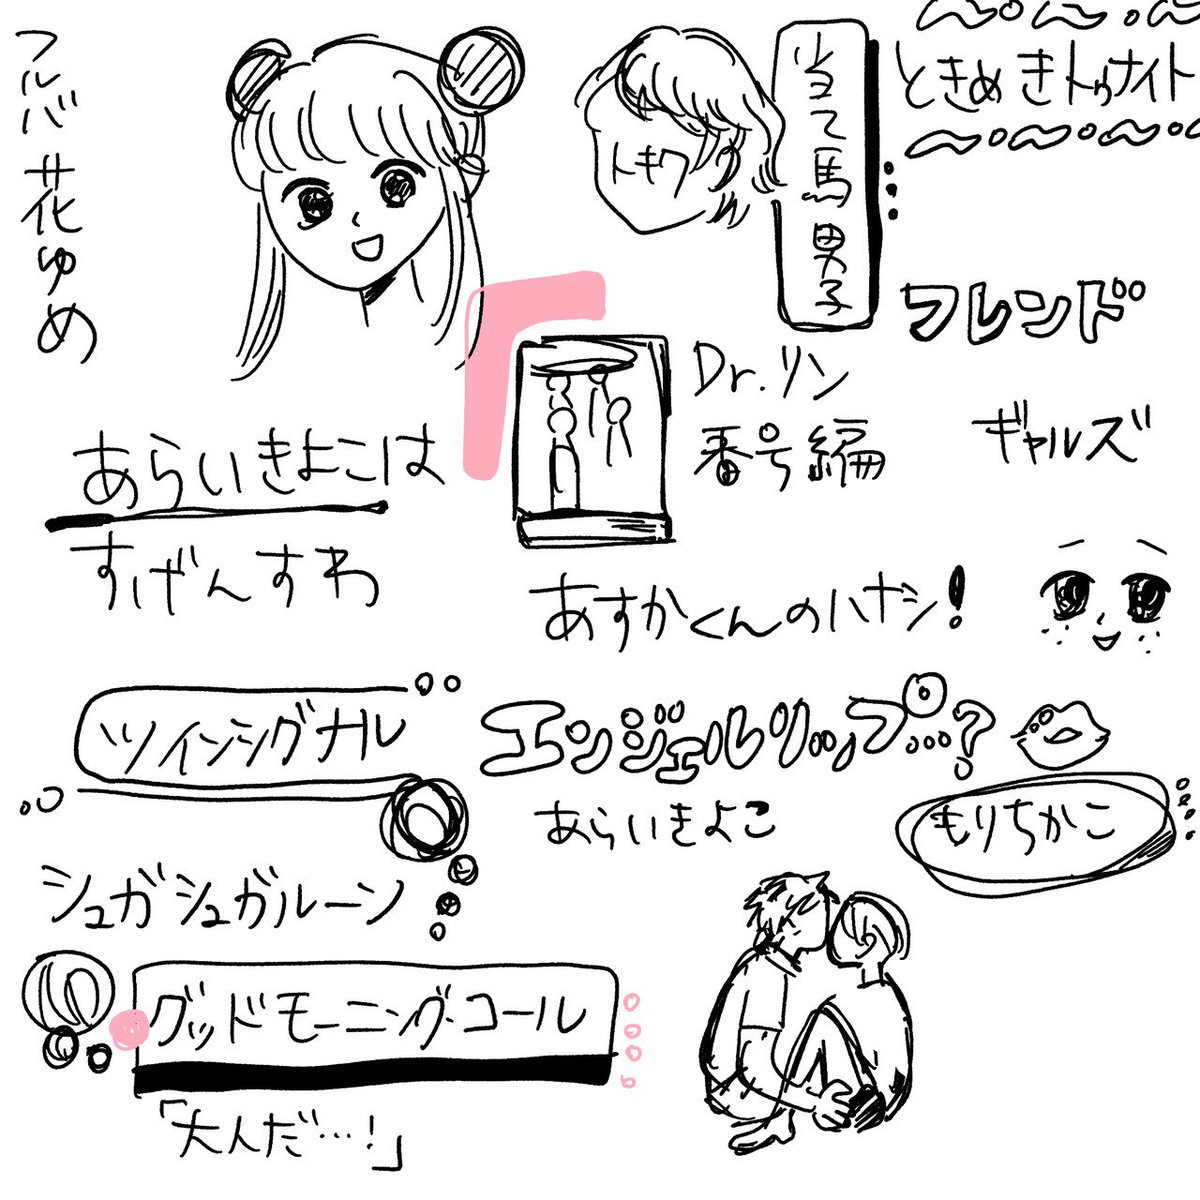 フルバ 花ゆめ
トキワ
当て馬男子
ときめきトゥナイト
フレンド
Dr.リン
番号編
ギャルズ
あらいきよこは
すげんすわ
あすかくんのハナシ!
ツインシグナル
エンジェルリップ…?
あらいきよこ
もりちかこ
シュガシュガルーン
グッドモーニング・コール
「大人だ…!」